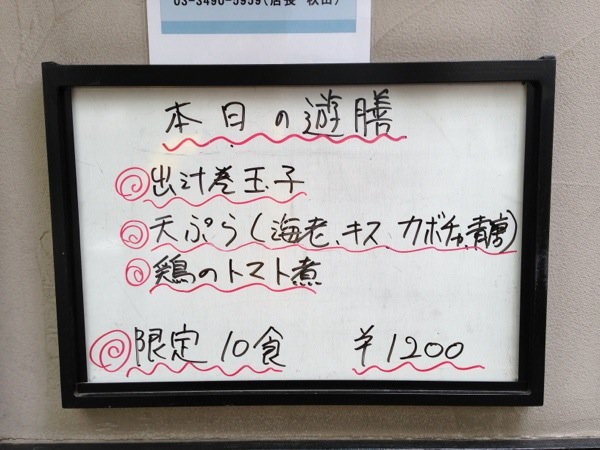 03-3490-5959(店長 秋田)
本日の遊膳
出汁巻玉子
天ぷら(海老、キス、カボチャ、青唐)
鶏のトマト煮
限定10食 ¥1200